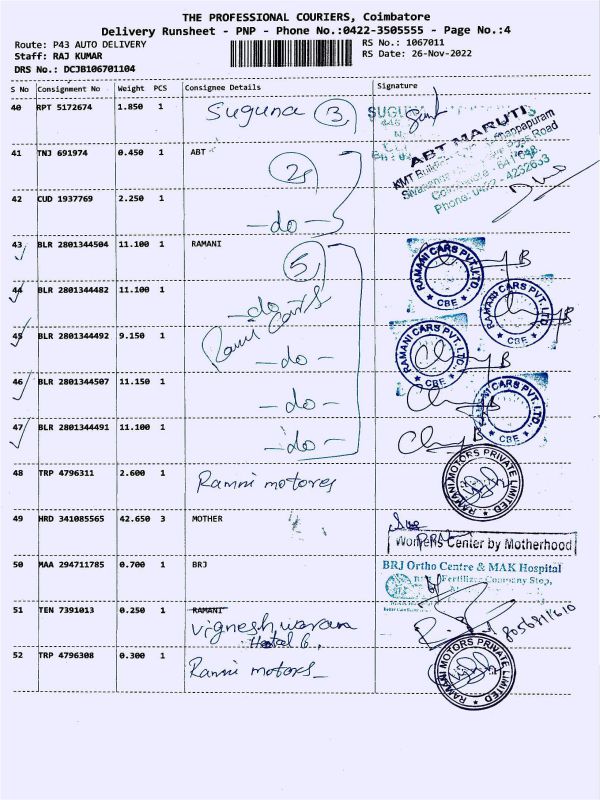 THE PROFESSIONAL COURIERS, Coimbatore
Delivery Runsheet - PNP - Phone No.:0422-3505555 - Page No.:4
Route: P43 AUTO DELIVERY
RS No.: 1067011
Staff: RAJ KUMAR
RS Date: 26-Nov-2022
DRS No.: DCJB106701104
S No Consignment No Weight PCS Consignee Details Signature
40 RPT 5172674 1.850 1 Suguna 3
ABT MARUTI
41 TNJ 691974 0.450 1 ABT
2
Phone: 0422 - 4232633
42 CUD 1937769 2.250 1
-do-
43 BLR 2801344504 11.100 1 RAMANI
5
RAMANI CARS PVT.LTD. * CBE *
44 BLR 2801344482 11.100 1 -do-
Ramani Cars
RAMANI CARS PVT.LTD. * CBE *
45 BLR 2801344492 9.150 1
-do-
RAMANI CARS PVT.LTD. * CBE *
46 BLR 2801344507 11.150 1
-do-
RAMANI CARS PVT.LTD. * CBE *
47 BLR 2801344491 11.100 1
-do-
48 TRP 4796311 2.600 1 Ramni motores
RAMANI MOTORS PRIVATE LIMITED
49 HRD 341085565 42.650 3 MOTHER
Womens Center by Motherhood
50 MAA 294711785 0.700 1 BRJ
BRJ Ortho Centre & MAK Hospital
Fertilizer Company Stop,
51 TEN 7391013 0.250 1 RAMANI
Vigneshwaran
52 TRP 4796308 0.300 1 Ramni motors
RAMANI MOTORS PRIVATE LIMITED